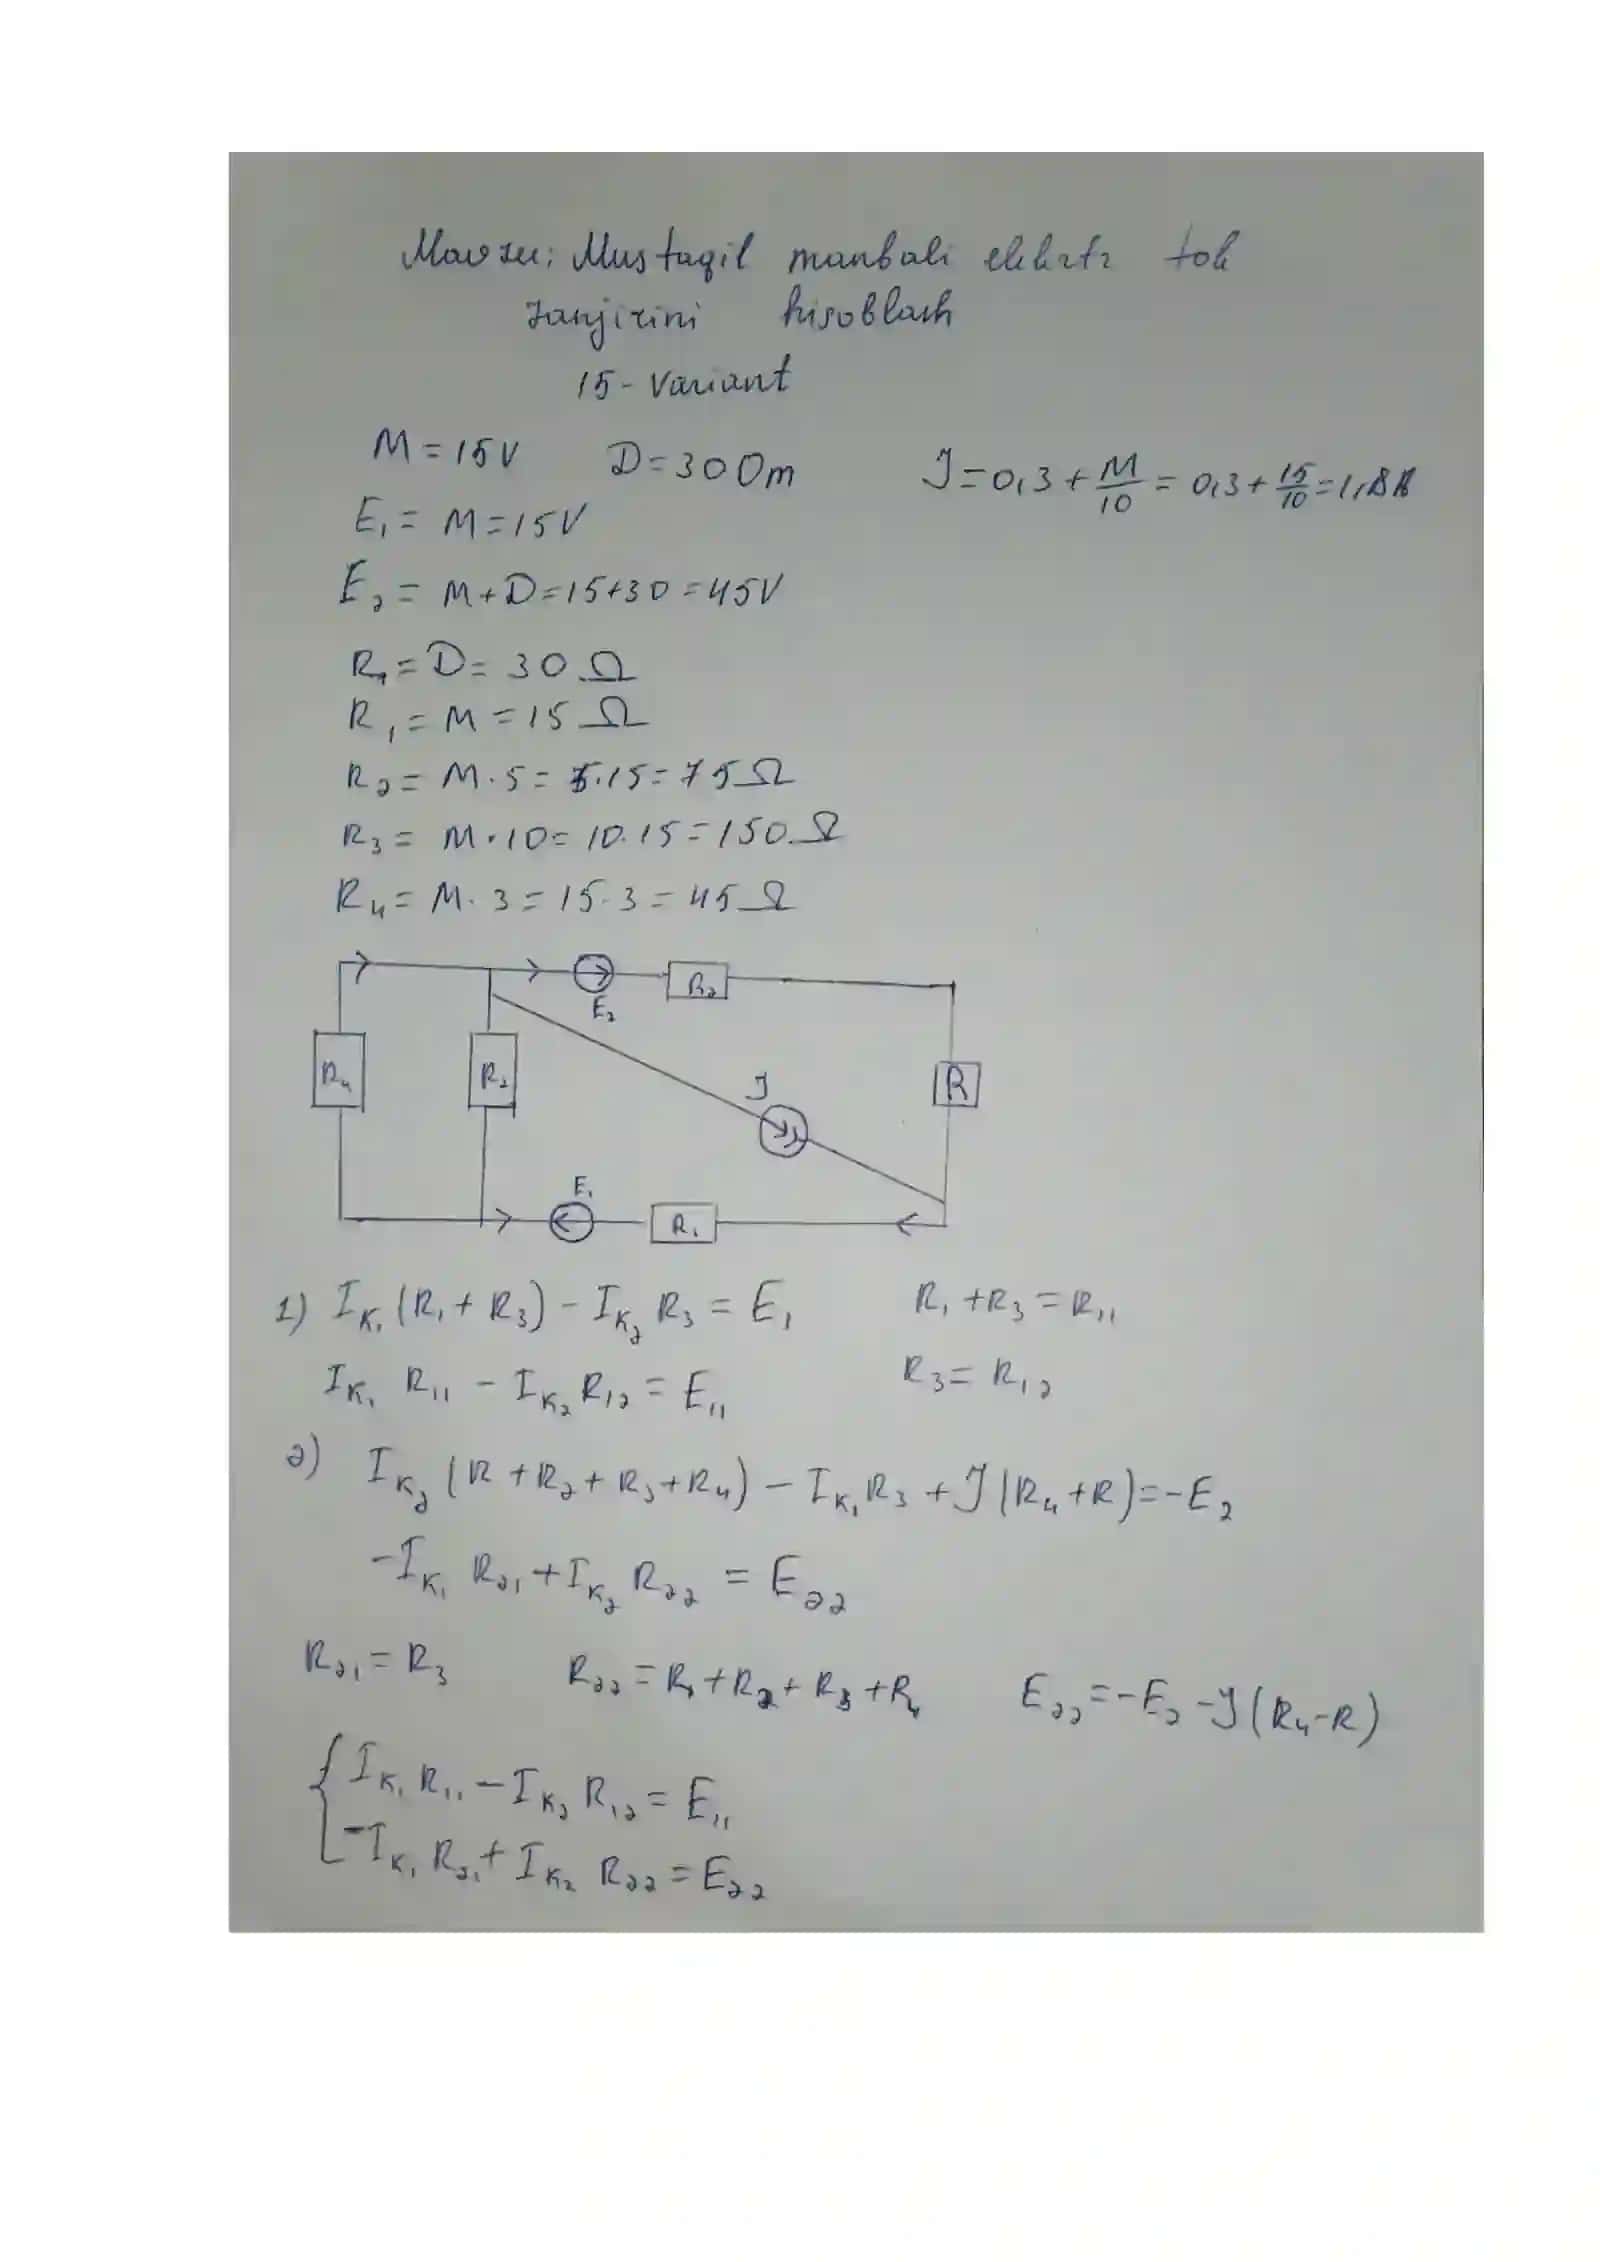 Mavzu: Mustaqil manbali elektr tok
zanjirini hisoblash
15-Variant
M=15V D=30Om J=0,3+M/10=0,3+15/10=1,8A
E₁=M=15V
E₂=M+D=15+30=45V
R₁=D=30Ω
R₁=M=15Ω
R₂=M·5=5·15=75Ω
R₃=M·10=10·15=150Ω
R₄=M·3=15·3=45Ω
E₂ R₂
R₄ R₂ J R
E₁ R₁
1) Iₖ₁(R₁+R₃)-Iₖ₂R₃=E₁ R₁+R₃=R₁₁
Iₖ₁R₁₁-Iₖ₂R₁₂=E₁₁ R₃=R₁₂
2) Iₖ₂(R+R₂+R₃+R₄)-Iₖ₁R₃+J(R₄+R)=-E₂
-Iₖ₁R₂₁+Iₖ₂R₂₂=E₂₂
R₂₁=R₃ R₂₂=R₁+R₂+R₃+R₄ E₂₂=-E₂-J(R₄-R)
{Iₖ₁R₁₁-Iₖ₂R₁₂=E₁₁
-Iₖ₁R₂₁+Iₖ₂R₂₂=E₂₂